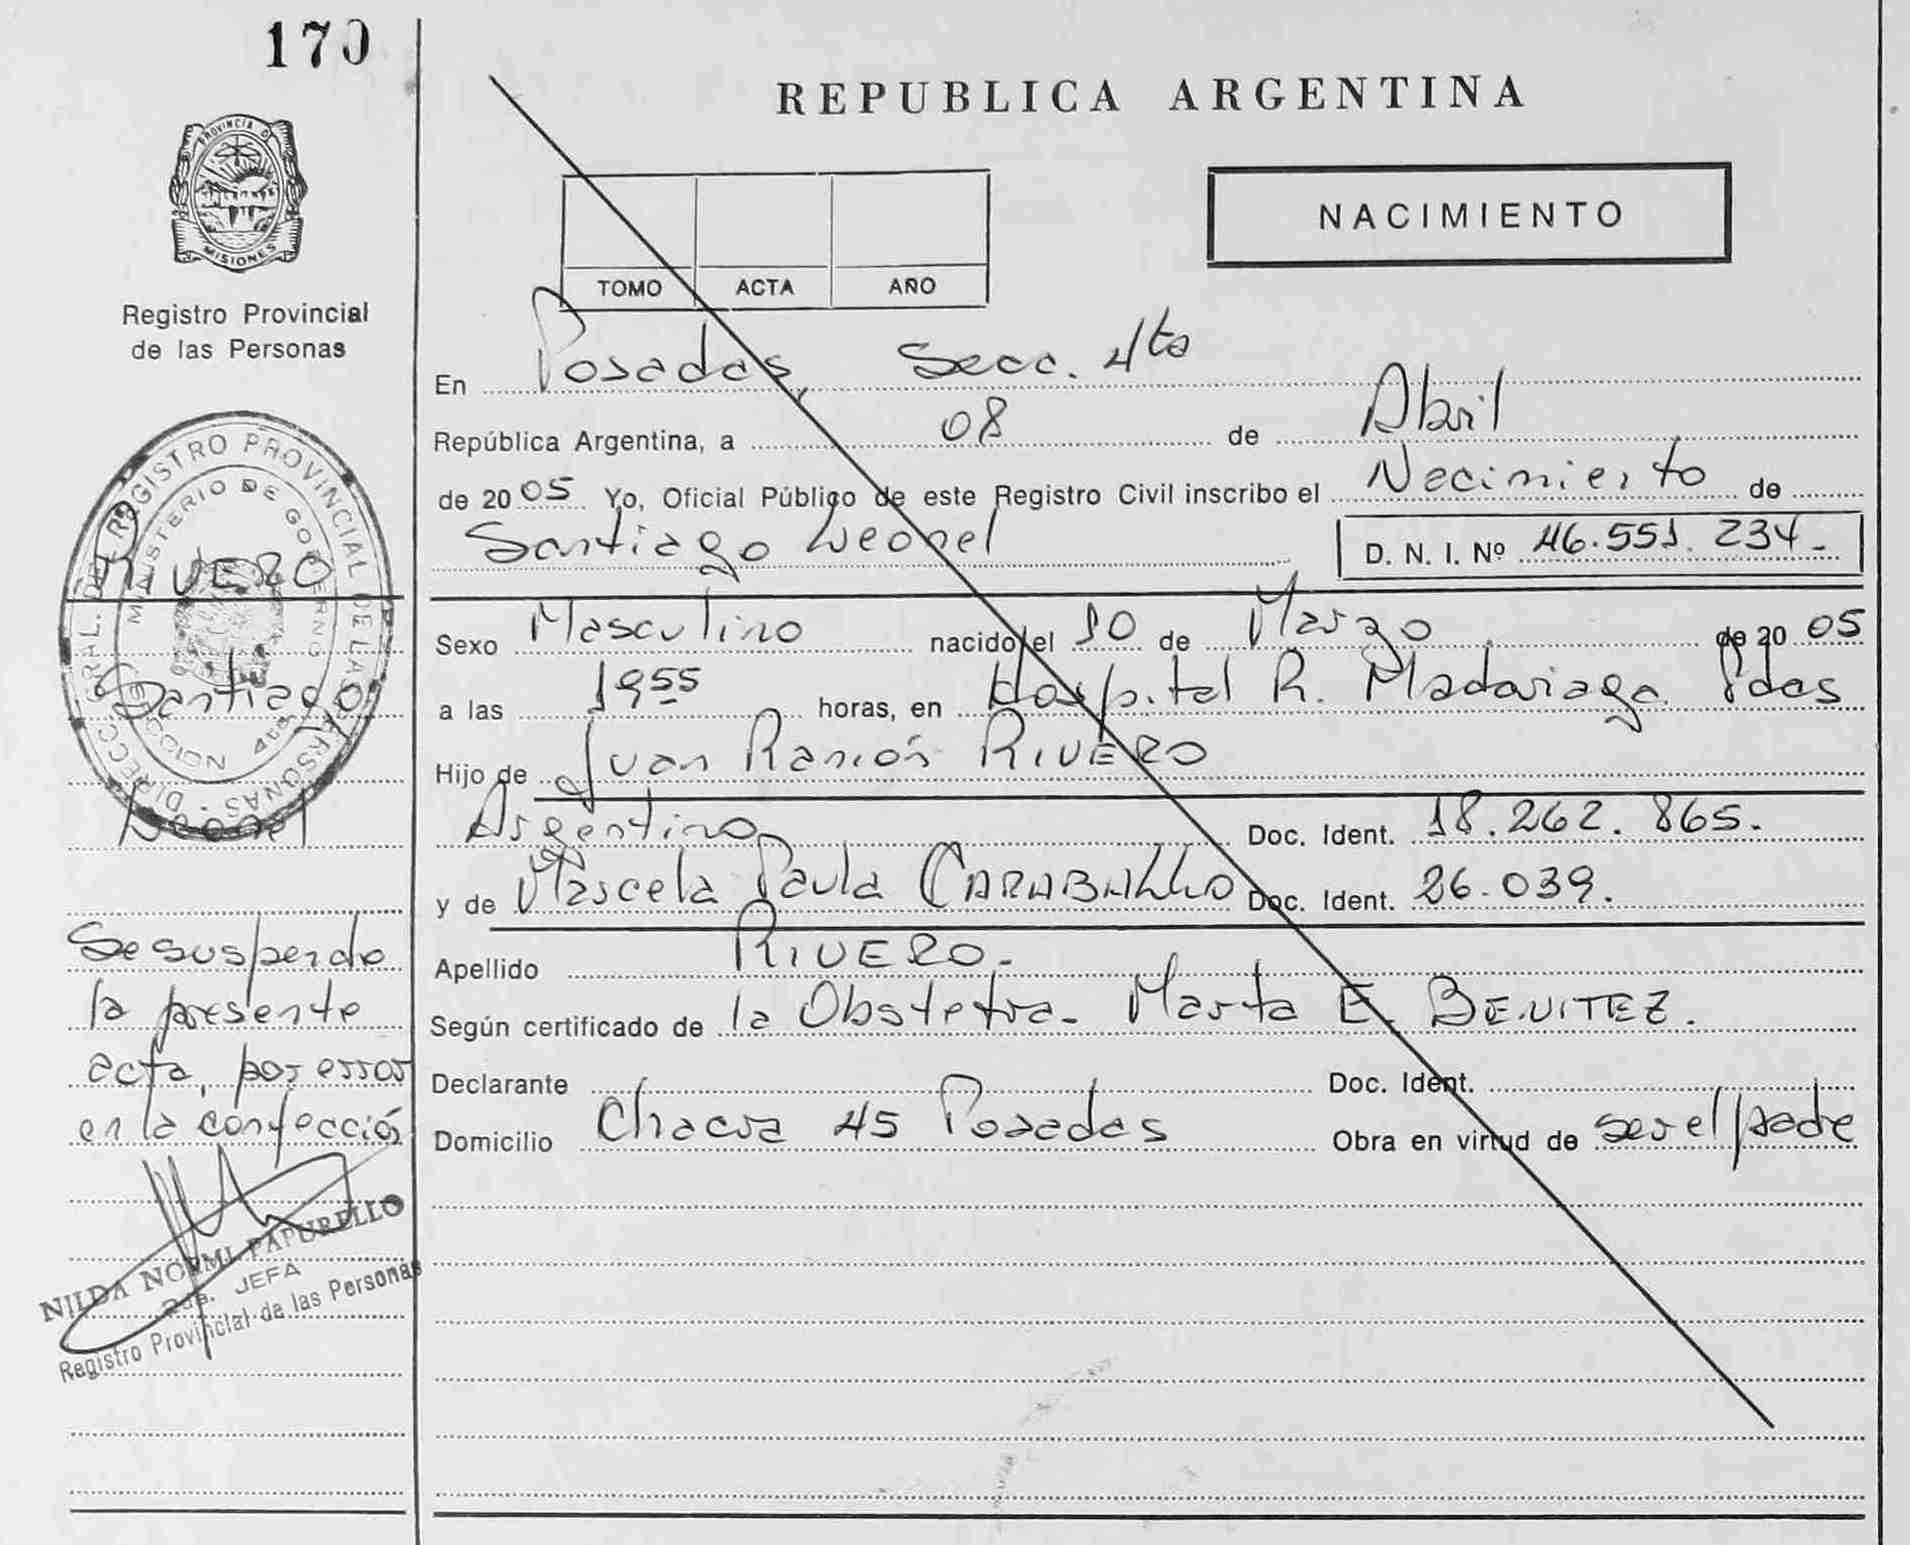 170
PROVINCIA DE
MISIONES
Registro Provincial
de las Personas
DIRECC. GRAL. DEL REGISTRO PROVINCIAL DE LAS PERSONAS
MINISTERIO DE GOBIERNO
RIVERO
Santiago
Leonel
Se suspende
la presente
acta, por error
en la confección
NILDA NORMI PAPURELLO
JEFA
Registro Provincial de las Personas
REPUBLICA ARGENTINA
NACIMIENTO
TOMO ACTA AÑO
En Posadas, Secc. 4ta
República Argentina, a 08 de Abril
de 2005 Yo, Oficial Público de este Registro Civil inscribo el Nacimiento de
Santiago Leonel D. N. I. Nº 46.551.234.-
Sexo Masculino nacido el 10 de Marzo de 2005
a las 1955 horas, en Hospital R. Madariaga Pdas
Hijo de Juan Ramón RIVERO
Argentino Doc. Ident. 18.262.865.
y de Marcela Paula CARABALLO Doc. Ident. 26.039.
Apellido RIVERO.-
Según certificado de la Obstetra. Marta E. BENITEZ.
Declarante Doc. Ident.
Domicilio Chacra 45 Posadas Obra en virtud de ser el padre